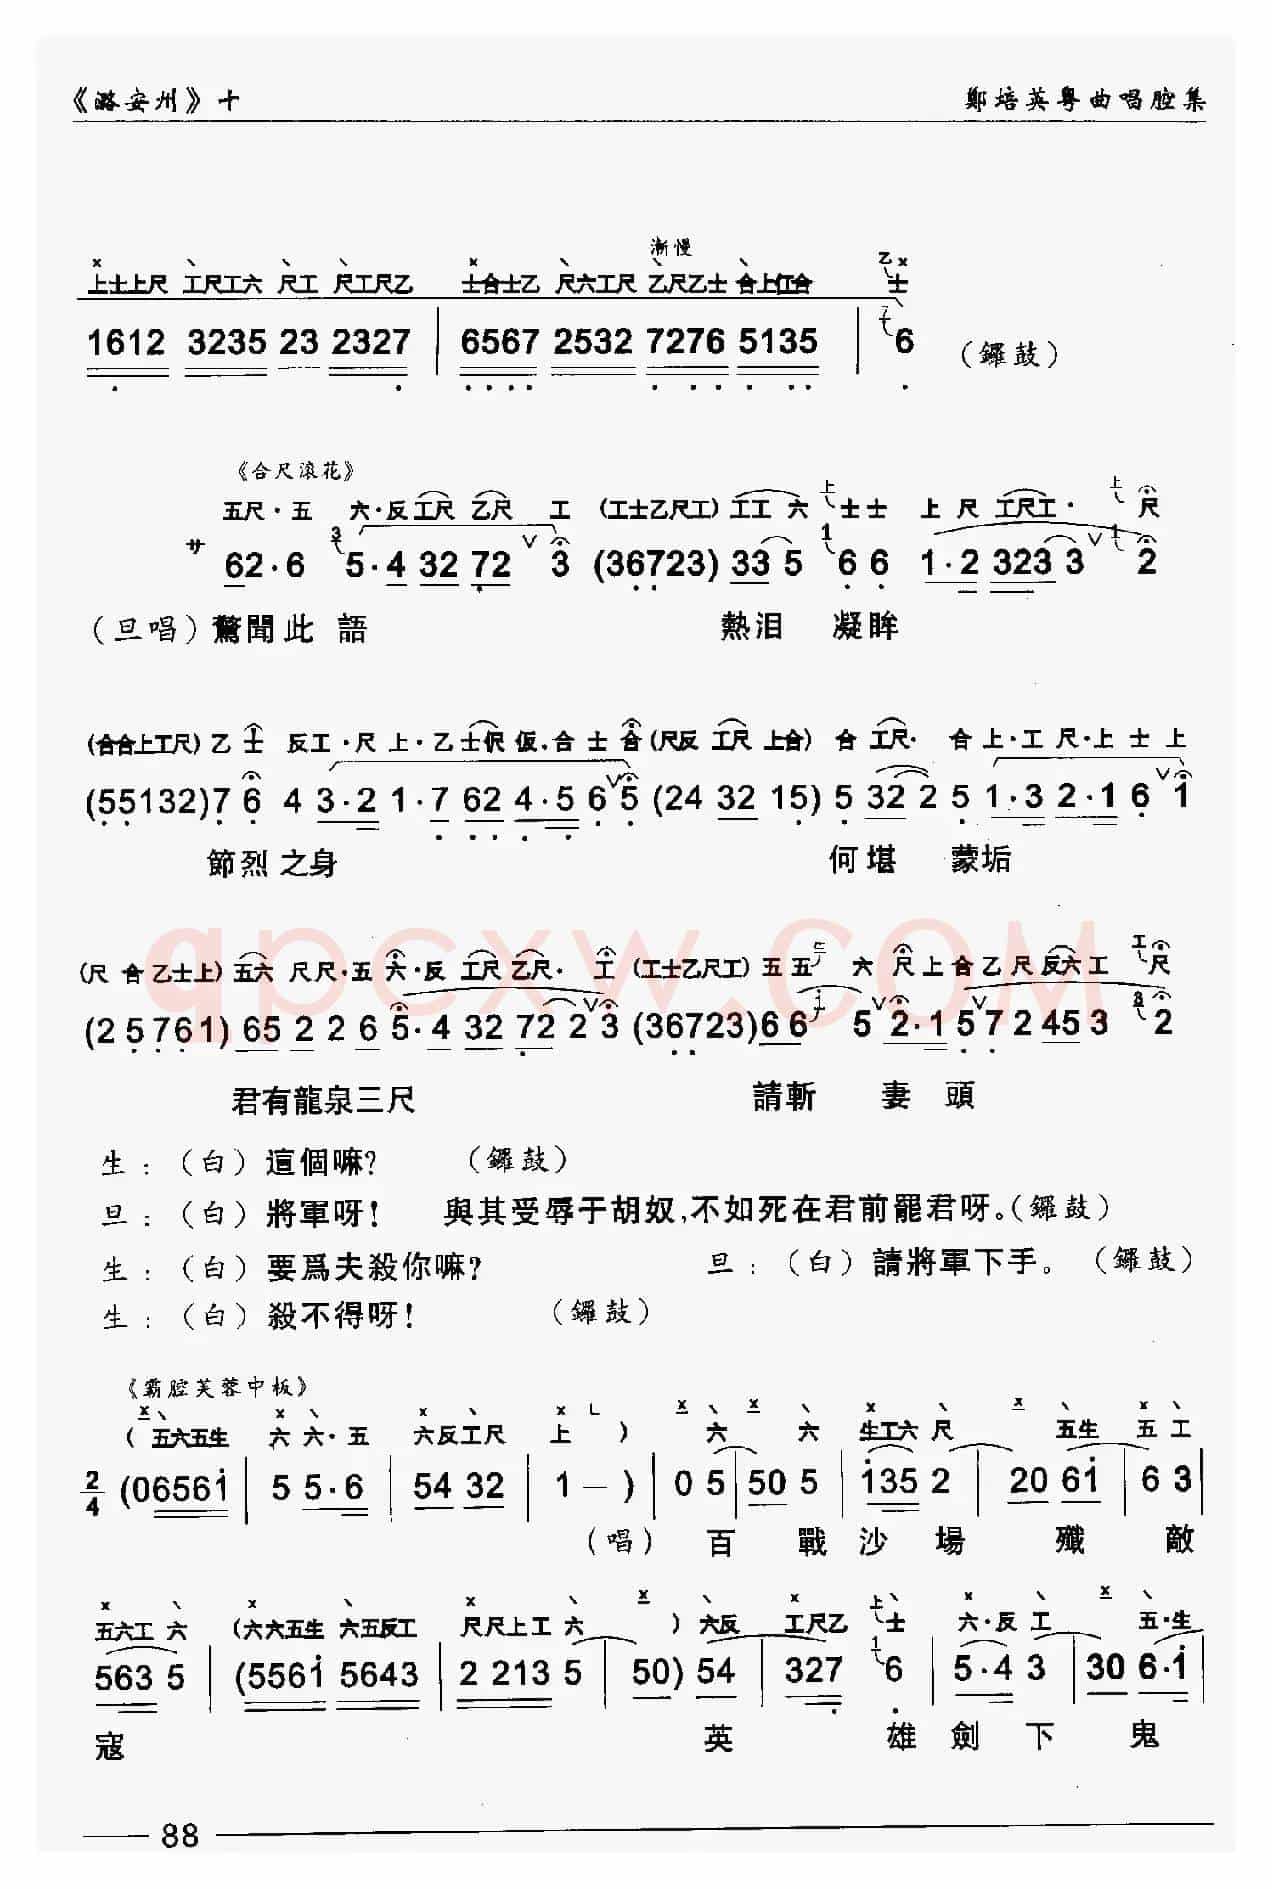 《潞安州》十 鄭培英粵曲唱腔集
漸慢
上士上尺 工尺工六 尺工 尺工尺乙 士合士乙 尺六工尺 乙尺乙士 合上仜合 乙士
1612 3235 23 2327 | 6567 2532 7276 5135 | 6 (鑼鼓)
《合尺滾花》
五尺·五 六·反工尺 乙尺 工 (工士乙尺工) 工工 六 上士士 上 尺 工尺工· 上尺
サ 62·6 5·4 32 72 3 (36723) 33 5 6 6 1·2 323 3 2
(旦唱) 驚聞此 語 熱泪 凝眸
(合合上工尺) 乙 士 反工·尺 上·乙 士伬 仮·合 士 合 (尺反 工尺 上合) 合 工尺· 合 上·工 尺·上 士 上
(55132) 7 6 4 3·2 1·7 62 4·5 6 5 (24 32 15) 5 32 2 5 1·3 2·1 6 1
節烈 之身 何堪 蒙垢
(尺 合 乙士上) 五六 尺 尺·五 六·反 工尺 乙尺· 工 (工士乙尺工) 五 五 六 尺上 合 乙 尺 反六 工 工尺
(2 5 761) 65 2 2 6 5·4 32 72 2 3 (36723) 66 5 2·1 5 7 2 45 3 2
君有龍泉三尺 請斬 妻 頭
生:(白)這個嘛? (鑼鼓)
旦:(白)將軍呀! 與其受辱于胡奴,不如死在君前罷君呀。(鑼鼓)
生:(白)要爲夫殺你嘛? 旦:(白)請將軍下手。 (鑼鼓)
生:(白)殺不得呀! (鑼鼓)
《霸腔芙蓉中板》
(五六五生 六 六·五 六反工尺 上 ) 六 六 生工六 尺 五生 五 工
2/4 (06561 | 5 5·6 | 54 32 | 1 — ) | 0 5 | 50 5 | 135 2 | 20 61 | 6 3 |
(唱) 百 戰 沙 場 殲 敵
五六工 六 (六六五生 六五反工 尺尺上工 六 ) 六反 工尺乙 上士 六·反 工 五·生
563 5 | (5561 5643 | 2 213 5 | 50) 54 | 327 6 | 5·4 3 | 30 6·1
寇 英 雄 劍 下 鬼
88
qpcxw.com